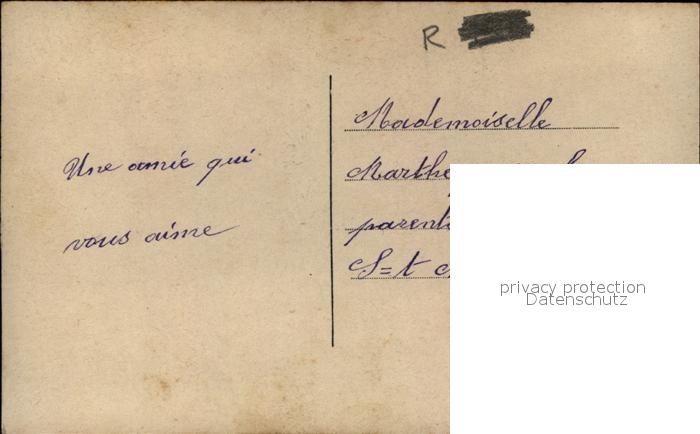 R
Une amie qui
vous aime
Mademoiselle
Marthe
parents
S=t
privacy protection
Datenschutz